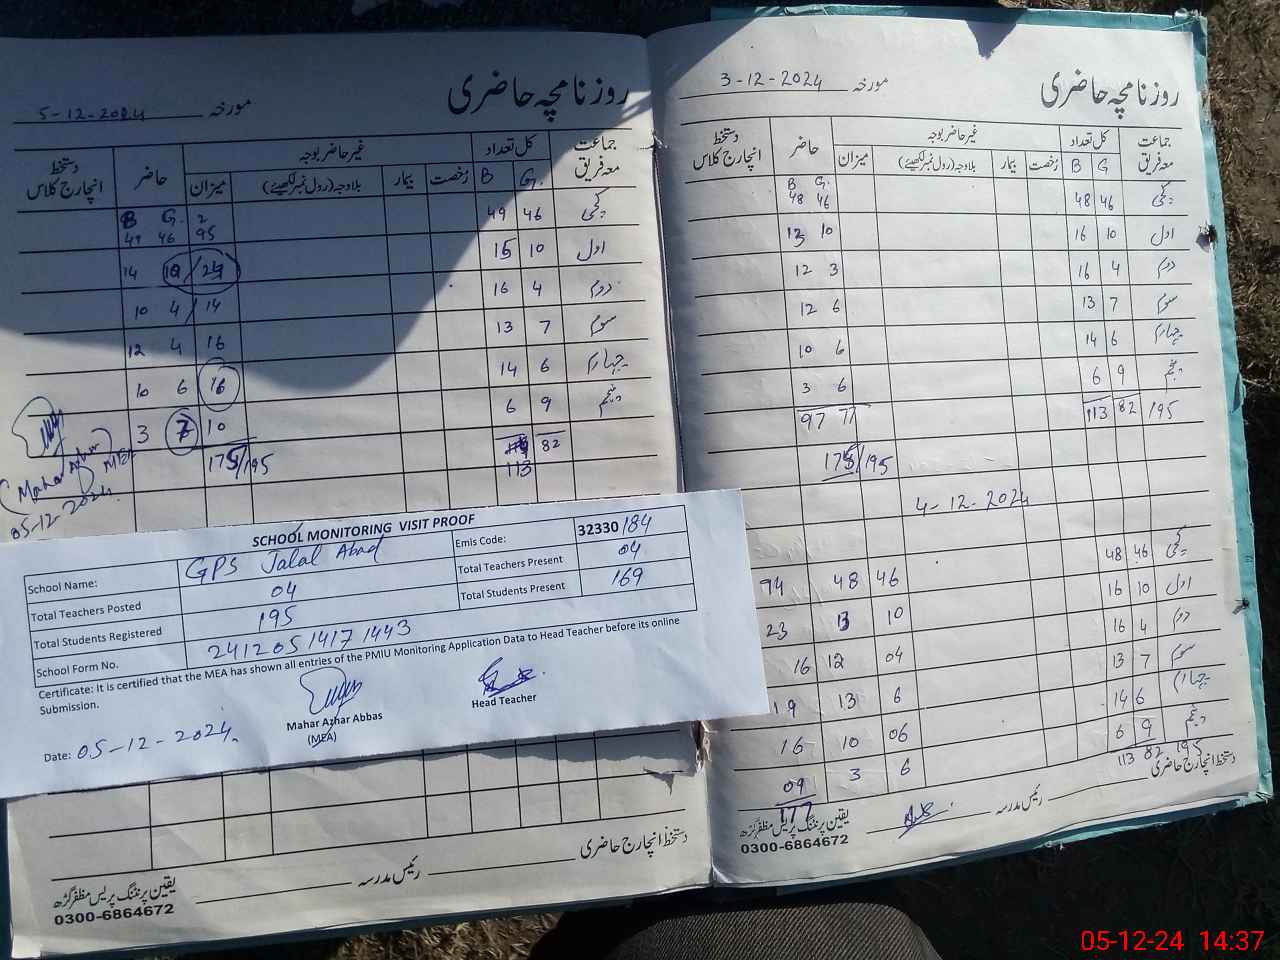 روزنامچہ حاضری
مورخہ 5-12-2024
جماعت معہ فریق کل تعداد غیر حاضر بوجہ حاضر دستخط انچارج کلاس
G. B رخصت بیمار بلاوجہ (رول نمبر لکھیئے) میزان
B G.
کچی 46 49 49 46 95
اول 10 15 14 10/24
دوم 4 16 10 4/14
سوم 7 13 12 4 16
چہارم 6 14 10 6 16
پنجم 9 6 3 7 10
82 113
175/195
Mahar Azhar
MEA
05-12-2024.
SCHOOL MONITORING VISIT PROOF
School Name: GPS Jalal Abad Emis Code: 32330184
Total Teachers Posted 04 Total Teachers Present 04
Total Students Registered 195 Total Students Present 169
School Form No. 24120514171443
Certificate: It is certified that the MEA has shown all entries of the PMIU Monitoring Application Data to Head Teacher before its online
Submission.
Mahar Azhar Abbas
(MEA)
Head Teacher
Date: 05-12-2024.
دستخط انچارج حاضری
رئیس مدرسہ
یقین پرنٹنگ پریس مظفرگڑھ
0300-6864672
روزنامچہ حاضری
مورخہ 3-12-2024
جماعت معہ فریق کل تعداد غیر حاضر بوجہ حاضر دستخط انچارج کلاس
G B رخصت بیمار بلاوجہ (رول نمبر لکھیئے) میزان
B G.
کچی 46 48 48 46
اول 10 16 13 10
دوم 4 16 12 3
سوم 7 13 12 6
چہارم 6 14 10 6
پنجم 9 6 3 6
195 82 113 97 77
175/195
4-12-2024
کچی 46 48 46 48 94
اول 10 16 10 13 23
دوم 4 16 04 12 16
سوم 7 13 6 13 19
چہارم 6 14 06 10 16
پنجم 9 6 6 3 09
113 82 195
177
دستخط انچارج حاضری
رئیس مدرسہ
یقین پرنٹنگ پریس مظفرگڑھ
0300-6864672
05-12-24 14:37